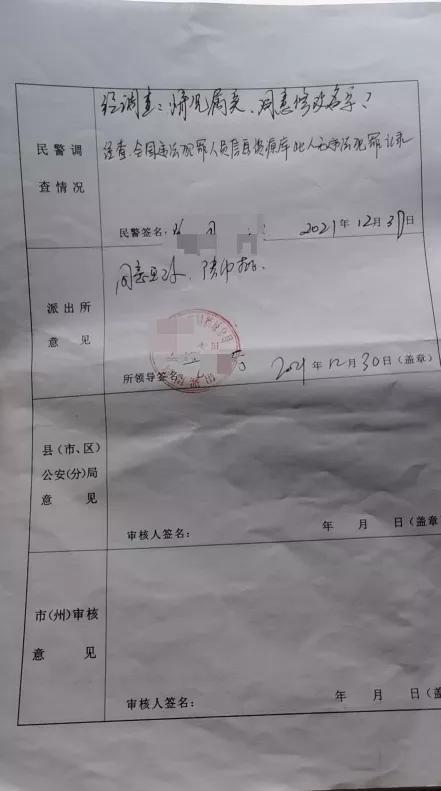 经调查：情况属实，同意修改名字？
民警调
查情况
经查，全国违法犯罪人员信息资源库此人无违法犯罪记录
民警签名：
2021年12月30日
同意呈报，请审批．
派出所
意见
所领导签名：
2021年12月30日（盖章）
县（市、区）
公安(分)局
意见
审核人签名：
年 月 日（盖章
市(州)审核
意见
审核人签名：
年 月 日（盖